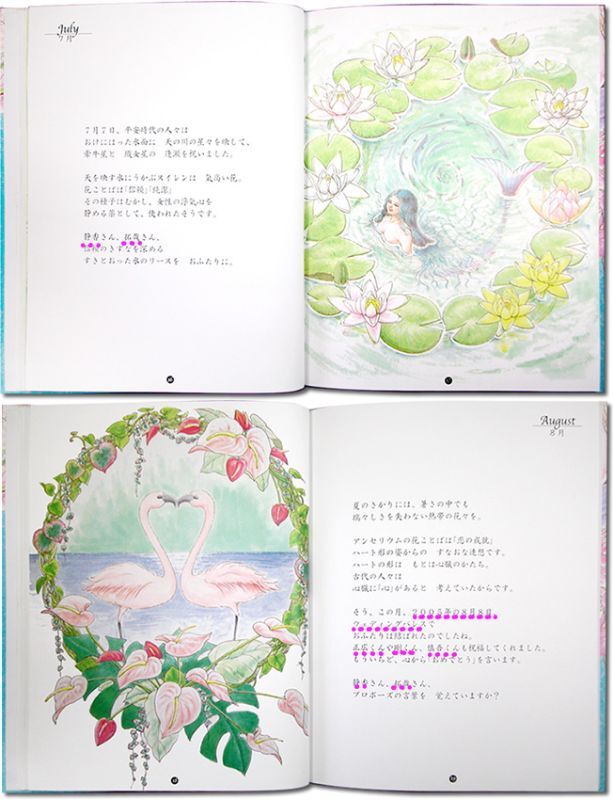 July
7月
7月7日、平安時代の人々は
おけにはった水面に 天の川の星々を映して、
牽牛星と 織女星の 逢瀬を祝いました。
天を映す水にうかぶスイレンは 気高い花。
花ことばは「信頼」「純潔」
その種子はむかし、女性の浮気心を
静める薬として、使われたそうです。
静香さん、拓哉さん、
信頼のきずなを深める
すきとおった水のリースを おふたりに。
August
8月
夏のさかりには、暑さの中でも
瑞々しさを失わない熱帯の花々を。
アンセリウムの花ことばは「恋の成就」
ハート形の姿からの すなおな連想です。
ハートの形は もとは心臓のかたち。
古代の人々は
心臓に「心」があると 考えていたからです。
そう、この月、2005年08月8日、
ウェディングパレスで
おふたりは結ばれたのでしたね。
正広くんや剛くん、慎吾くんも祝福してくれました。
もういちど、心から「おめでとう」を言います。
静香さん、拓哉さん、
プロポーズの言葉を 覚えていますか?